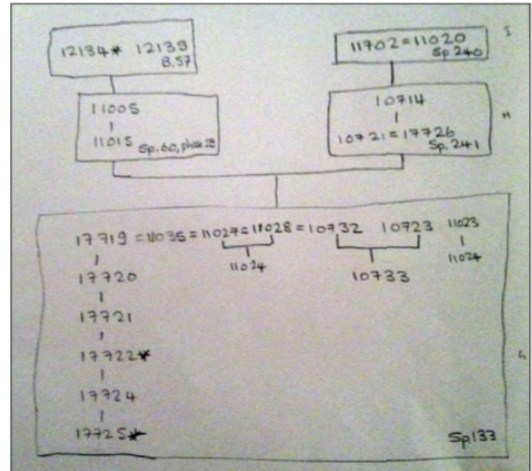 12134* 12139
B.57
11702=11020
Sp.240
I
11005
11015
Sp.60, phase 2B
10714
10721=17726
Sp.241
II
17719=11035=11027=11028=10732 10723 11023
11024
10733
11024
17720
17721
17722*
17724
17725*
Sp133